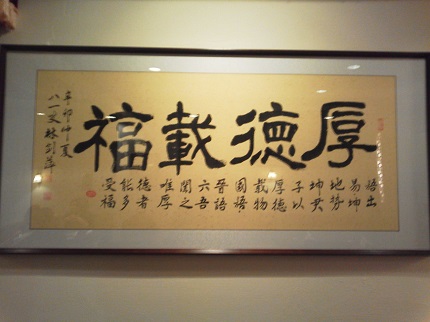 厚德載福
語出
易坤
地势
坤君
子以
厚德
載物
國語
晉語
六吾
聞之
唯厚
德者
能多
受福
辛卯仲夏
八一叟林